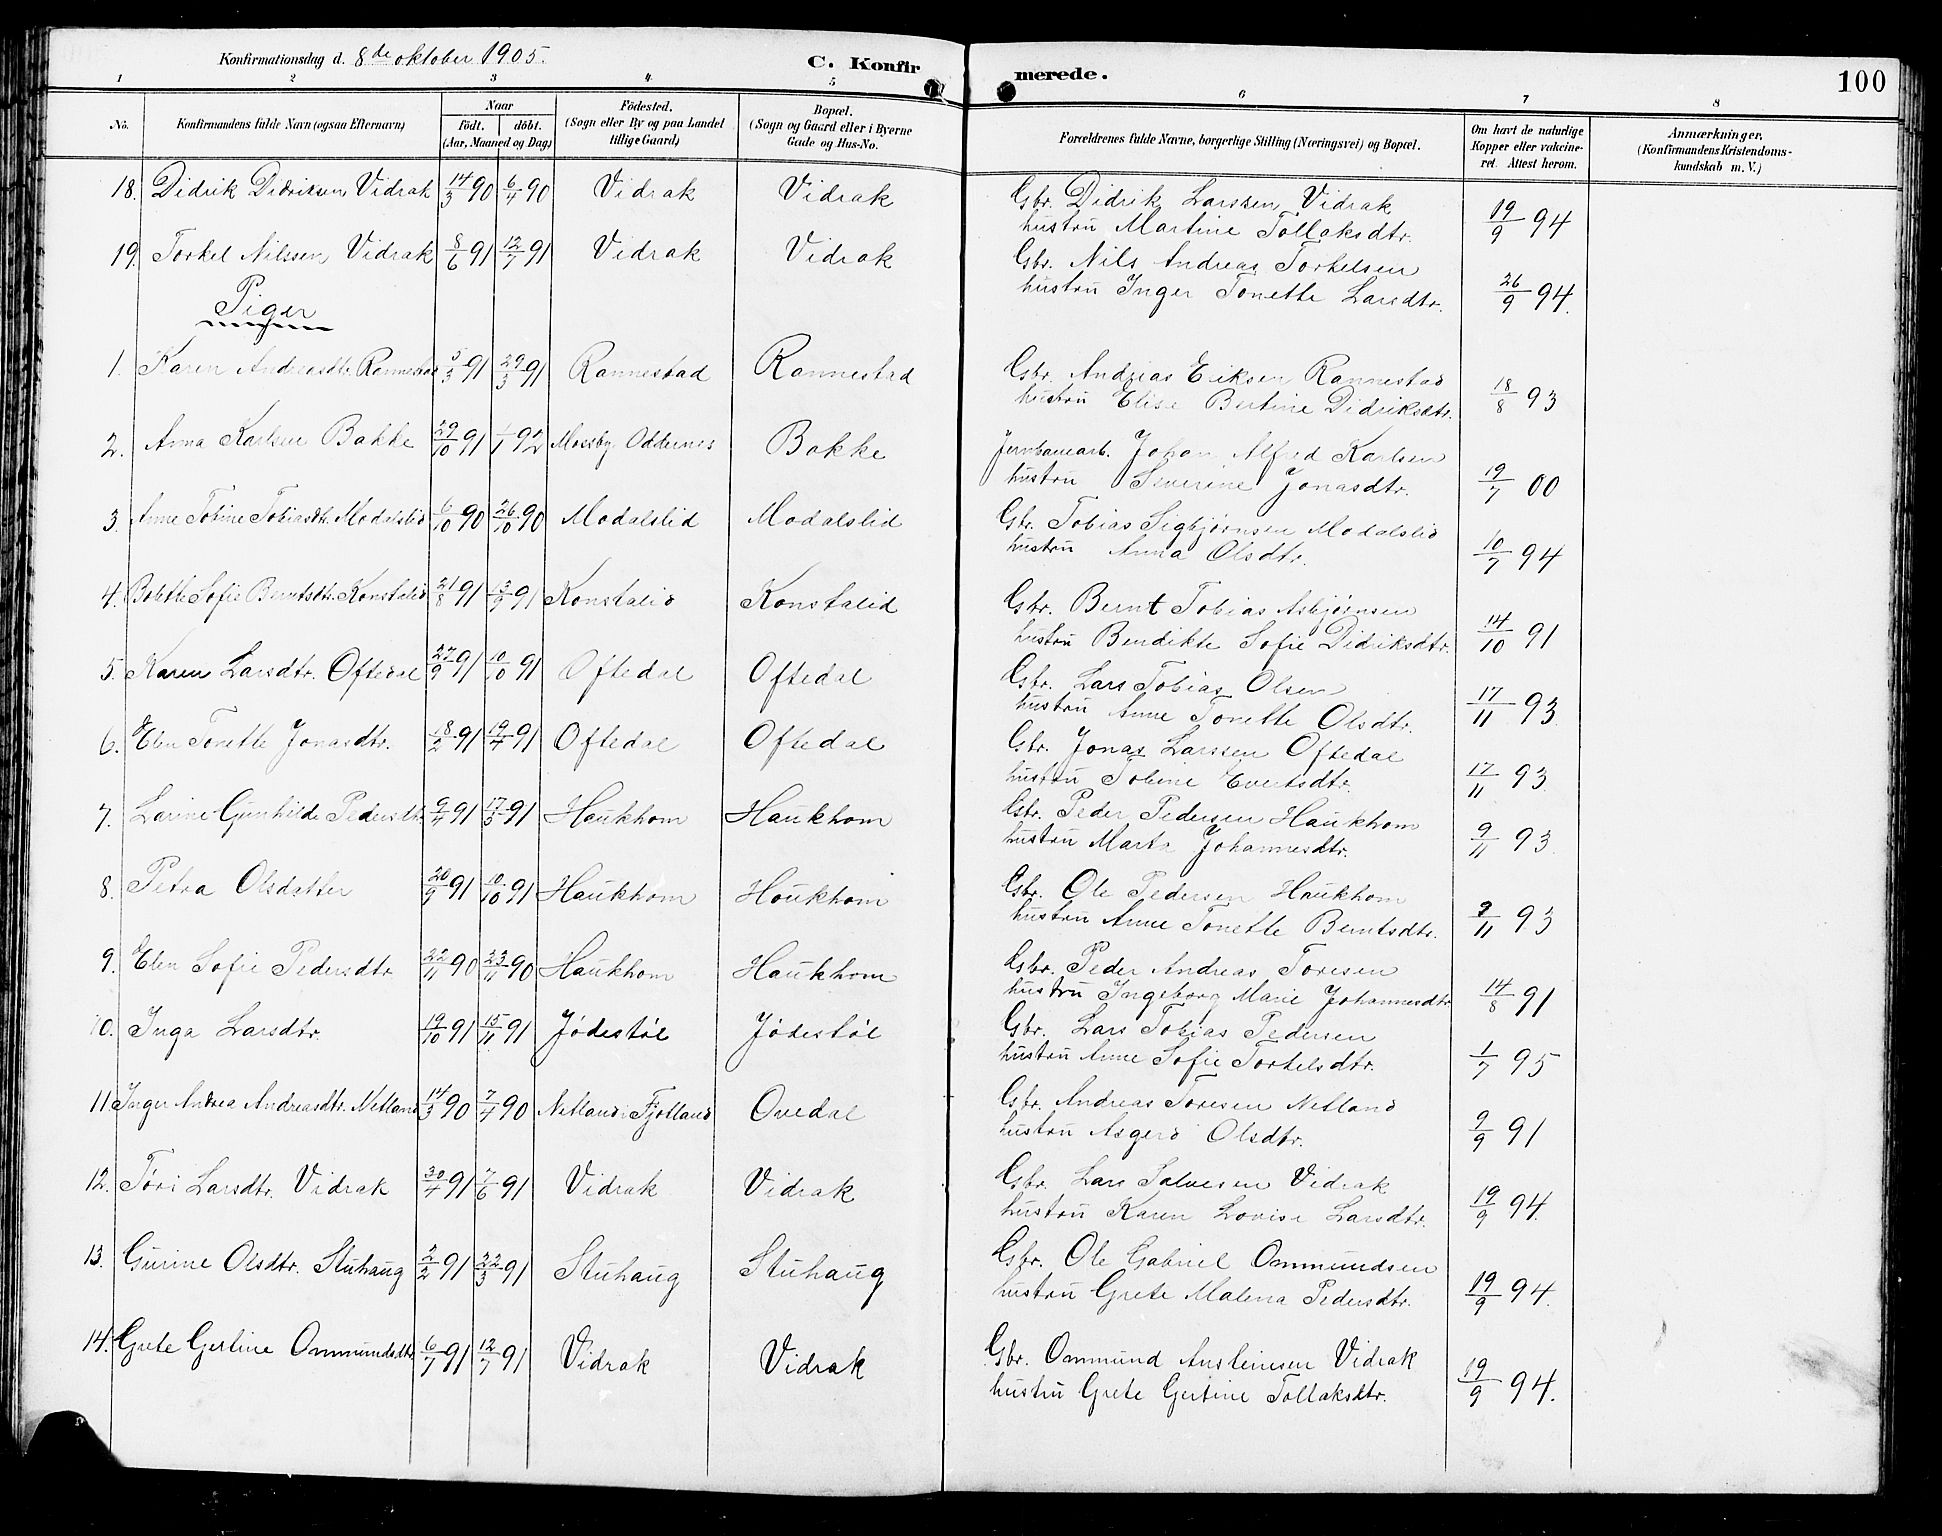 Konfirmationsdag d. 8de oktober 1905.
C. Konfirmerede.
100
1 2 3 4 5 6 7 8
No. Konfirmandens fulde Navn (ogsaa Efternavn) Naar födt. döbt. (Aar, Maaned og Dag) Födested. (Sogn eller By og paa Landet tillige Gaard) Bopæl. (Sogn og Gaard eller i Byerne Gade og Hus-No. Forældrenes fulde Navne, borgerlige Stilling (Næringsvei) og Bopæl. Om havt de naturlige Kopper eller vakcineret. Attest herom. Anmærkninger. (Konfirmandens Kristendomskundskab m. V.)
18. Didrik Didriksen Vidrak 14/3 90 6/4 90 Vidrak Vidrak Gbr. Didrik Larssen Vidrak
hustru Martine Tollaksdtr. 19/9 94
19. Torkel Nilssen Vidrak 8/6 91 12/7 91 Vidrak Vidrak Gbr. Nils Andreas Torkelsen
hustru Inger Tonette Larsdtr. 26/9 94.
Piger
1. Karen Andreasdtr. Rannestad 5/3 91 29/3 91 Rannestad Rannestad Gbr. Andreas Eriksen Rannestad
hustru Elise Bertine Didriksdtr. 18/8 93
2. Anna Karlsen Bakke 29/10 91 1/1 92 Mossby Oddernes Bakke Jernbanearb. Johan Alfred Karlsen
hustru Severine Jonasdtr. 19/7 00
3. Anne Tobine Tobiasdtr. Modalslid 6/10 90 26/10 90 Modalslid Modalslid Gbr. Tobias Sigbjørnsen Modalslid
hustru Anna Olsdtr. 10/7 94
4. Bolette Sofie Berntsdtr. Konstalid 21/8 91 13/9 91 Konstalid Konstalid Gbr. Bernt Tobias Asbjørnsen
hustru Bendikte Sofie Didriksdtr. 14/10 91
5. Karen Larsdtr. Oftedal 27/9 91 10/10 91 Oftedal Oftedal Gbr. Lars Tobias Olsen
hustru Anne Tonette Olsdtr. 17/11 93
6. Elen Tonette Jonasdtr. 18/2 91 19/4 91 Oftedal Oftedal Gbr. Jonas Larssen Oftedal
hustru Tobine Evertsdtr. 17/11 93
7. Larine Gunhilde Pedersdtr. 9/4 91 17/5 91 Haukhom Haukhom Gbr. Peder Pedersen Haukhom
hustru Marta Johannesdtr. 9/11 93
8. Petra Olsdatter 20/9 91 10/10 91 Haukhom Houkhom Gbr. Ole Pedersen Haukhom
hustru Anne Tonette Berntsdtr. 9/11 93
9. Elen Sofie Pedersdtr 22/11 90 23/11 90 Haukhom Haukhom Gbr. Peder Andreas Toresen
hustru Ingeborg Marie Johannesdtr 14/8 91
10. Inga Larsdtr. 19/10 91 15/11 91 Jødestøl Jødestøl Gbr. Lars Tobias Pedersen
hustru Anne Sofie Torkelsdtr. 1/7 95
11. Inger Andrea Andreasdtr. Netland 14/3 90 7/4 90 Netland i Fjotland Ovedal Gbr. Andreas Toresen Netland
hustru Asgerd Olsdtr. 9/9 91
12. Tøri Larsdtr. Vidrak 30/4 91 7/6 91 Vidrak Vidrak Gbr. Lars Salvesen Vidrak
hustru Karen Lovise Larsdtr. 19/9 94.
13. Gurine Olsdtr. Stuhaug 2/2 91 22/3 91 Stuhaug Stuhaug Gbr. Ole Gabriel Ommundsen
hustru Grete Malena Pedersdtr. 19/9 94.
14. Grete Gertine Ommundsdtr. 6/7 91 12/7 91 Vidrak Vidrak Gbr. Ommund Ansteinsen Vidrak
hustru Grete Gertine Tollaksdtr. 19/9 94.